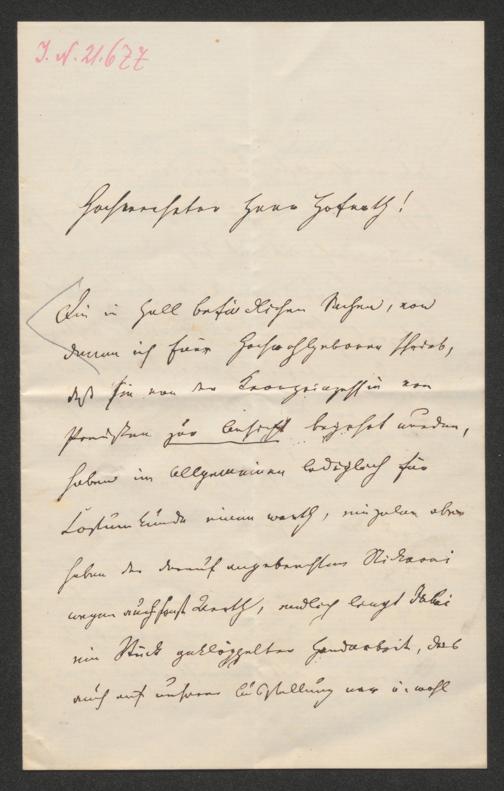 J. N. 21.677
Hochverehrter Herr Hofrath!
Die in Hall befindlichen Sachen, von
denen ich Euer Hochwohlgeboren schrieb,
daß sie von der Kronprinzessin von
Preußen zur Ansicht begehrt wurden,
haben im Allgemeinen lediglich für
Costümkunde einen werth, einzelne aber
haben der darauf angebrachten Stickerei
wegen auch sonst Werth, endlich liegt dabei
ein Stück geklöppelter Handarbeit, das
auch auf unserer Ausstellung war u. wohl